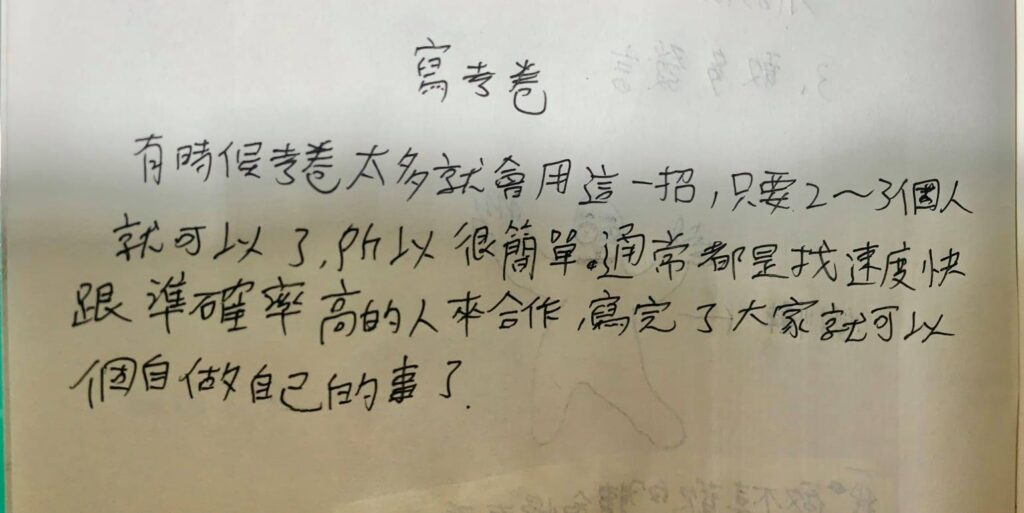 寫考卷
有時候考卷太多就會用這一招,只要2～3個人
就可以了,所以很簡單。通常都是找速度快
跟準確率高的人來合作,寫完了大家就可以
個自做自己的事了.